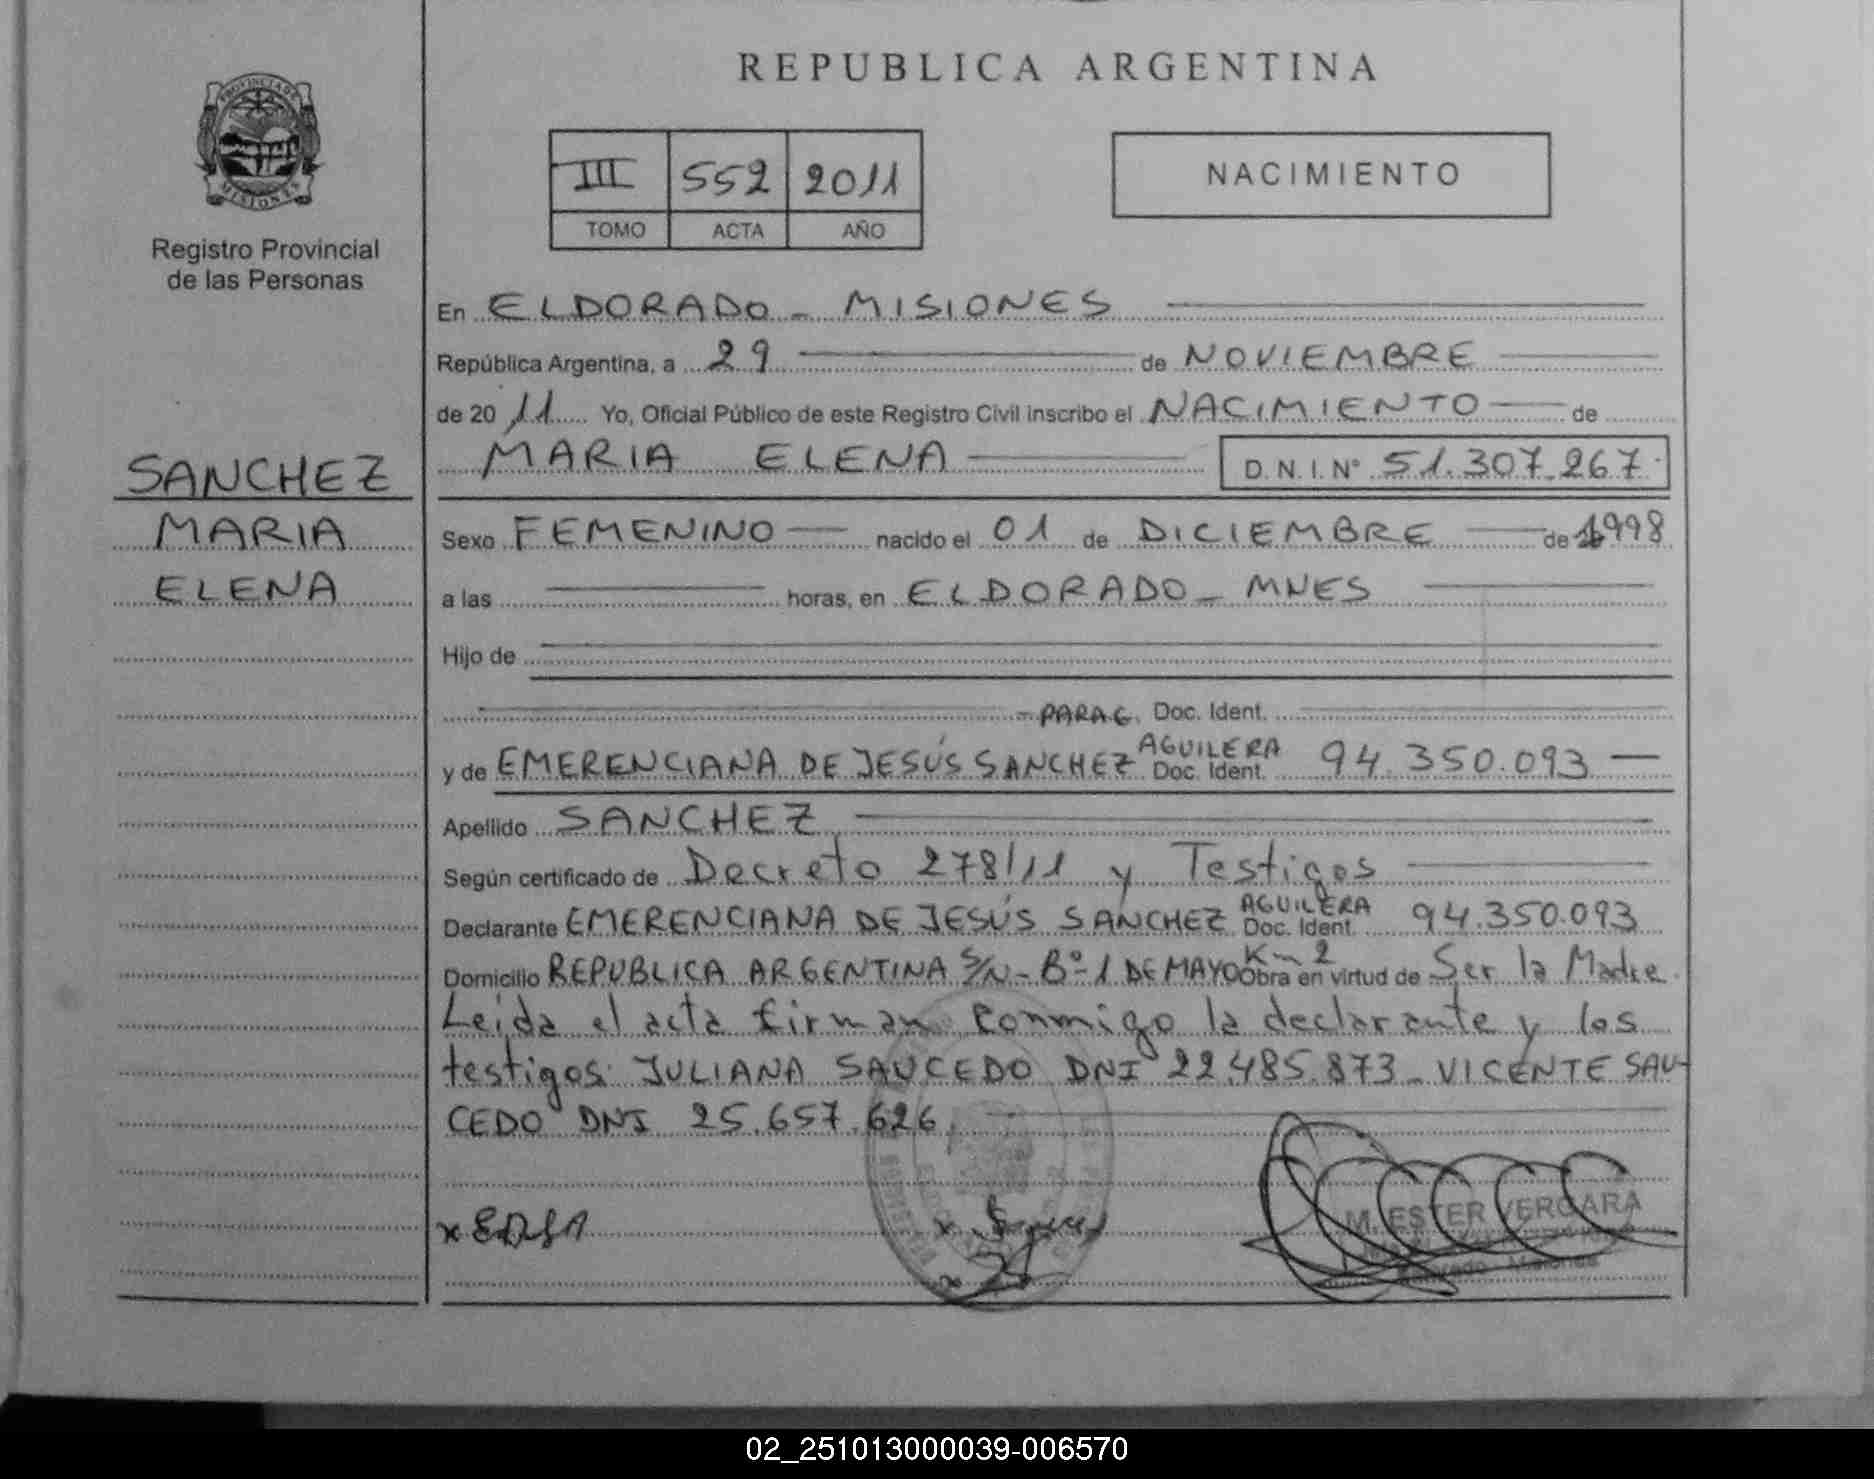 REPUBLICA ARGENTINA
PROVINCIA DE
MISIONES
Registro Provincial
de las Personas
III 552 2011
TOMO ACTA AÑO
NACIMIENTO
En ELDORADO - MISIONES
República Argentina, a 29 de NOVIEMBRE
de 20 11 Yo, Oficial Público de este Registro Civil inscribo el NACIMIENTO de
MARIA ELENA D.N.I. N° 51.307.267
SANCHEZ
MARIA
ELENA
Sexo FEMENINO nacido el 01 de DICIEMBRE de 1998
a las horas, en ELDORADO - MNES
Hijo de
- PARAG. Doc. Ident.
y de EMERENCIANA DE JESÚS SANCHEZ AGUILERA Doc. Ident. 94.350.093
Apellido SANCHEZ
Según certificado de Decreto 278/11 y Testigos
Declarante EMERENCIANA DE JESÚS SANCHEZ AGUILERA Doc. Ident. 94.350.093
Domicilio REPUBLICA ARGENTINA S/N - B° 1 DE MAYO Km 2 Obra en virtud de Ser la Madre.
Leida el acta firman conmigo la declarante y los
testigos: JULIANA SAUCEDO DNI 22.485.873 - VICENTE SAU-
CEDO DNI 25.657.626.
M. ESTER VERGARA
02_251013000039-006570